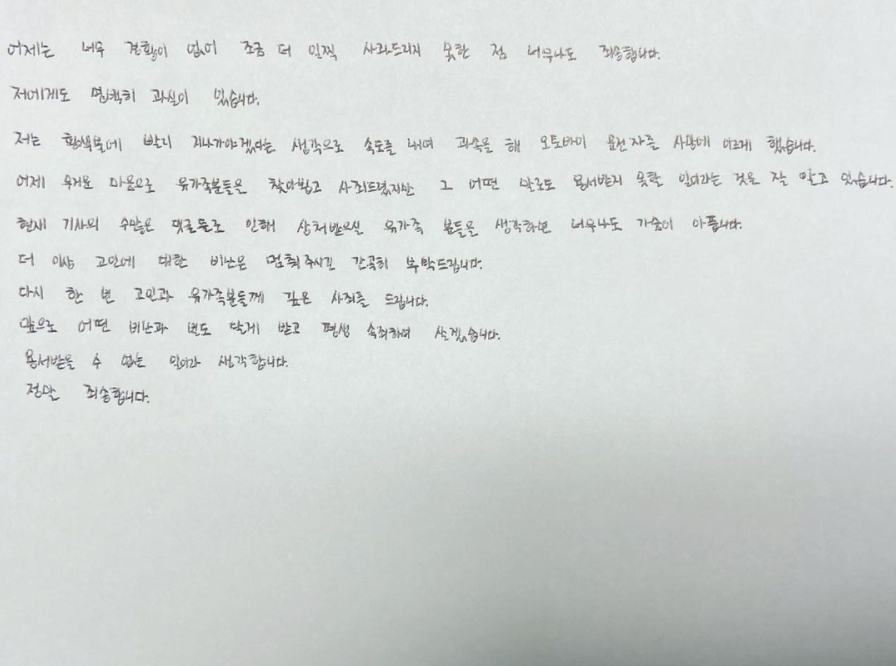 어제는 너무 경황이 없어 조금 더 일찍 사과드리지 못한 점 너무나도 죄송합니다.
저에게도 명백히 과실이 있습니다.
저는 황색불에 빨리 지나가야겠다는 생각으로 속도를 내며 과속을 해 오토바이 운전자를 사망에 이르게 했습니다.
어제 무거운 마음으로 유가족분들을 찾아뵙고 사죄드렸지만 그 어떤 말로도 용서받지 못할 일이라는 것을 잘 알고 있습니다.
현재 기사의 수많은 댓글들로 인해 상처받으실 유가족 분들을 생각하면 너무나도 가슴이 아픕니다.
더 이상 고인에 대한 비난은 멈춰주시길 간곡히 부탁드립니다.
다시 한 번 고인과 유가족분들께 깊은 사죄를 드립니다.
앞으로 어떤 비난과 벌도 달게 받고 평생 속죄하며 살겠습니다.
용서받을 수 없는 일이라 생각합니다.
정말 죄송합니다.